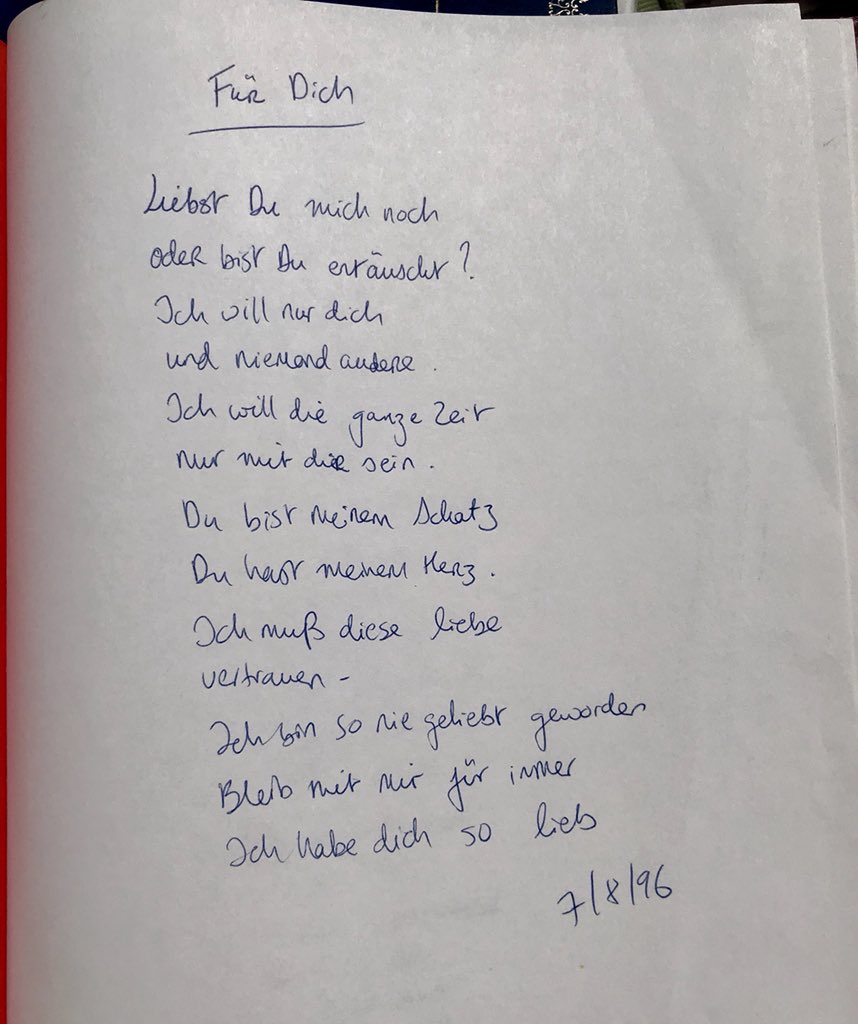 Für Dich
Liebst Du mich noch
oder bist Du entäuscht?
Ich will nur dich
und niemand andere.
Ich will die ganze Zeit
nur mit dir sein.
Du bist meinem Schatz
Du hast meinem Herz.
Ich muß diese liebe
vertrauen -
Ich bin so nie geliebt geworden
Bleib mit mir für immer
Ich habe dich so lieb
7/8/96